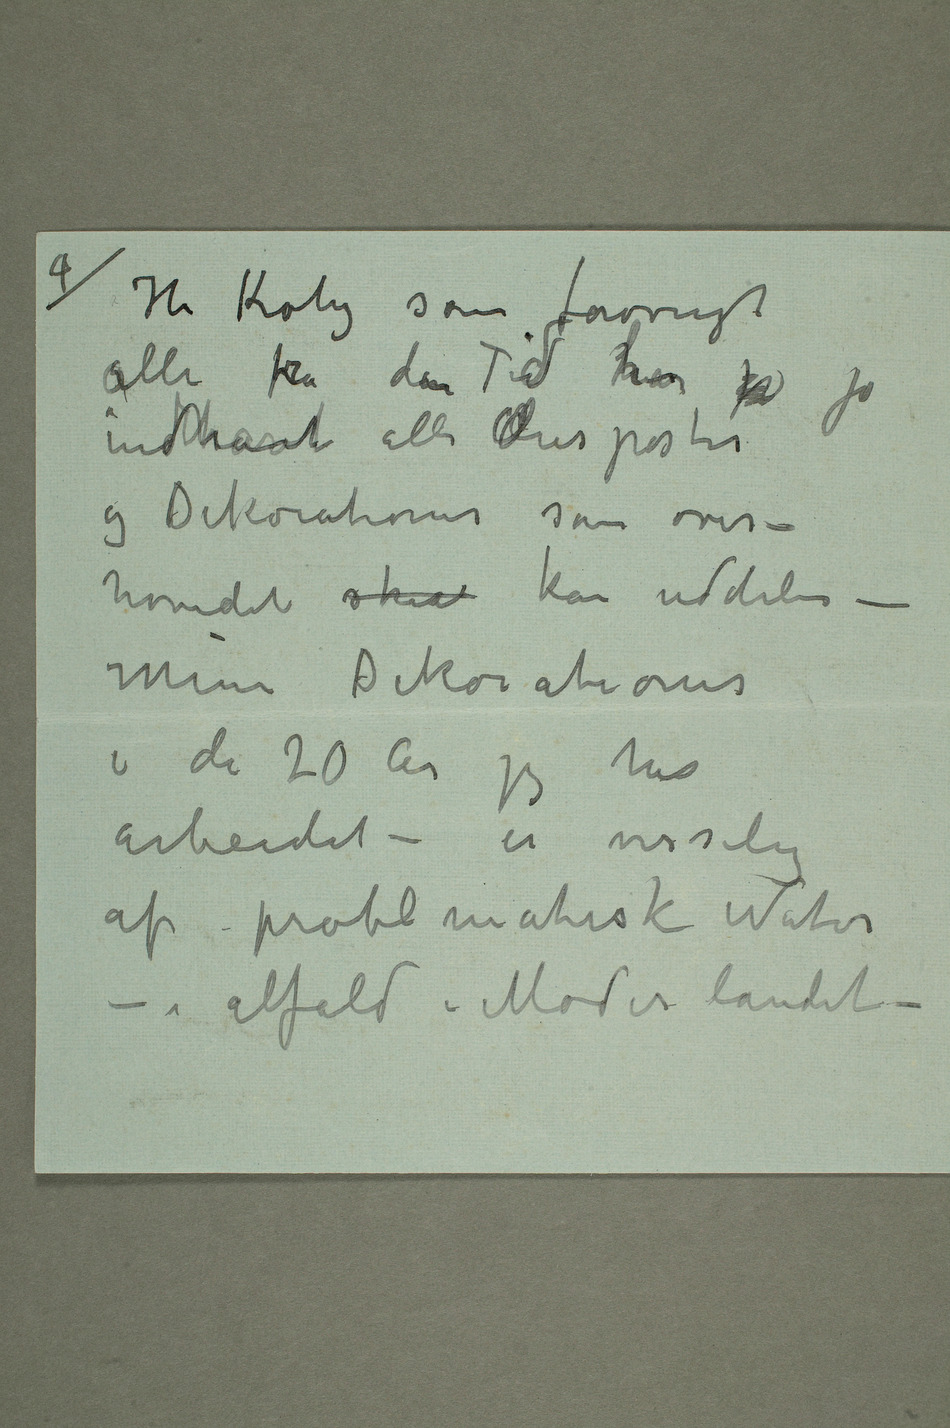 4/
Hr Krohg som forøvrigt
alle fra den Tid har jo
indhøstet alle Æresposter
og Dekorationer som over–
hovedet skal kan uddeles –
Mine Dekorationer
i de 20 Aar jeg har
arbeidet – er visselig
af problematisk Natur
– i alfald i Moderlandet –